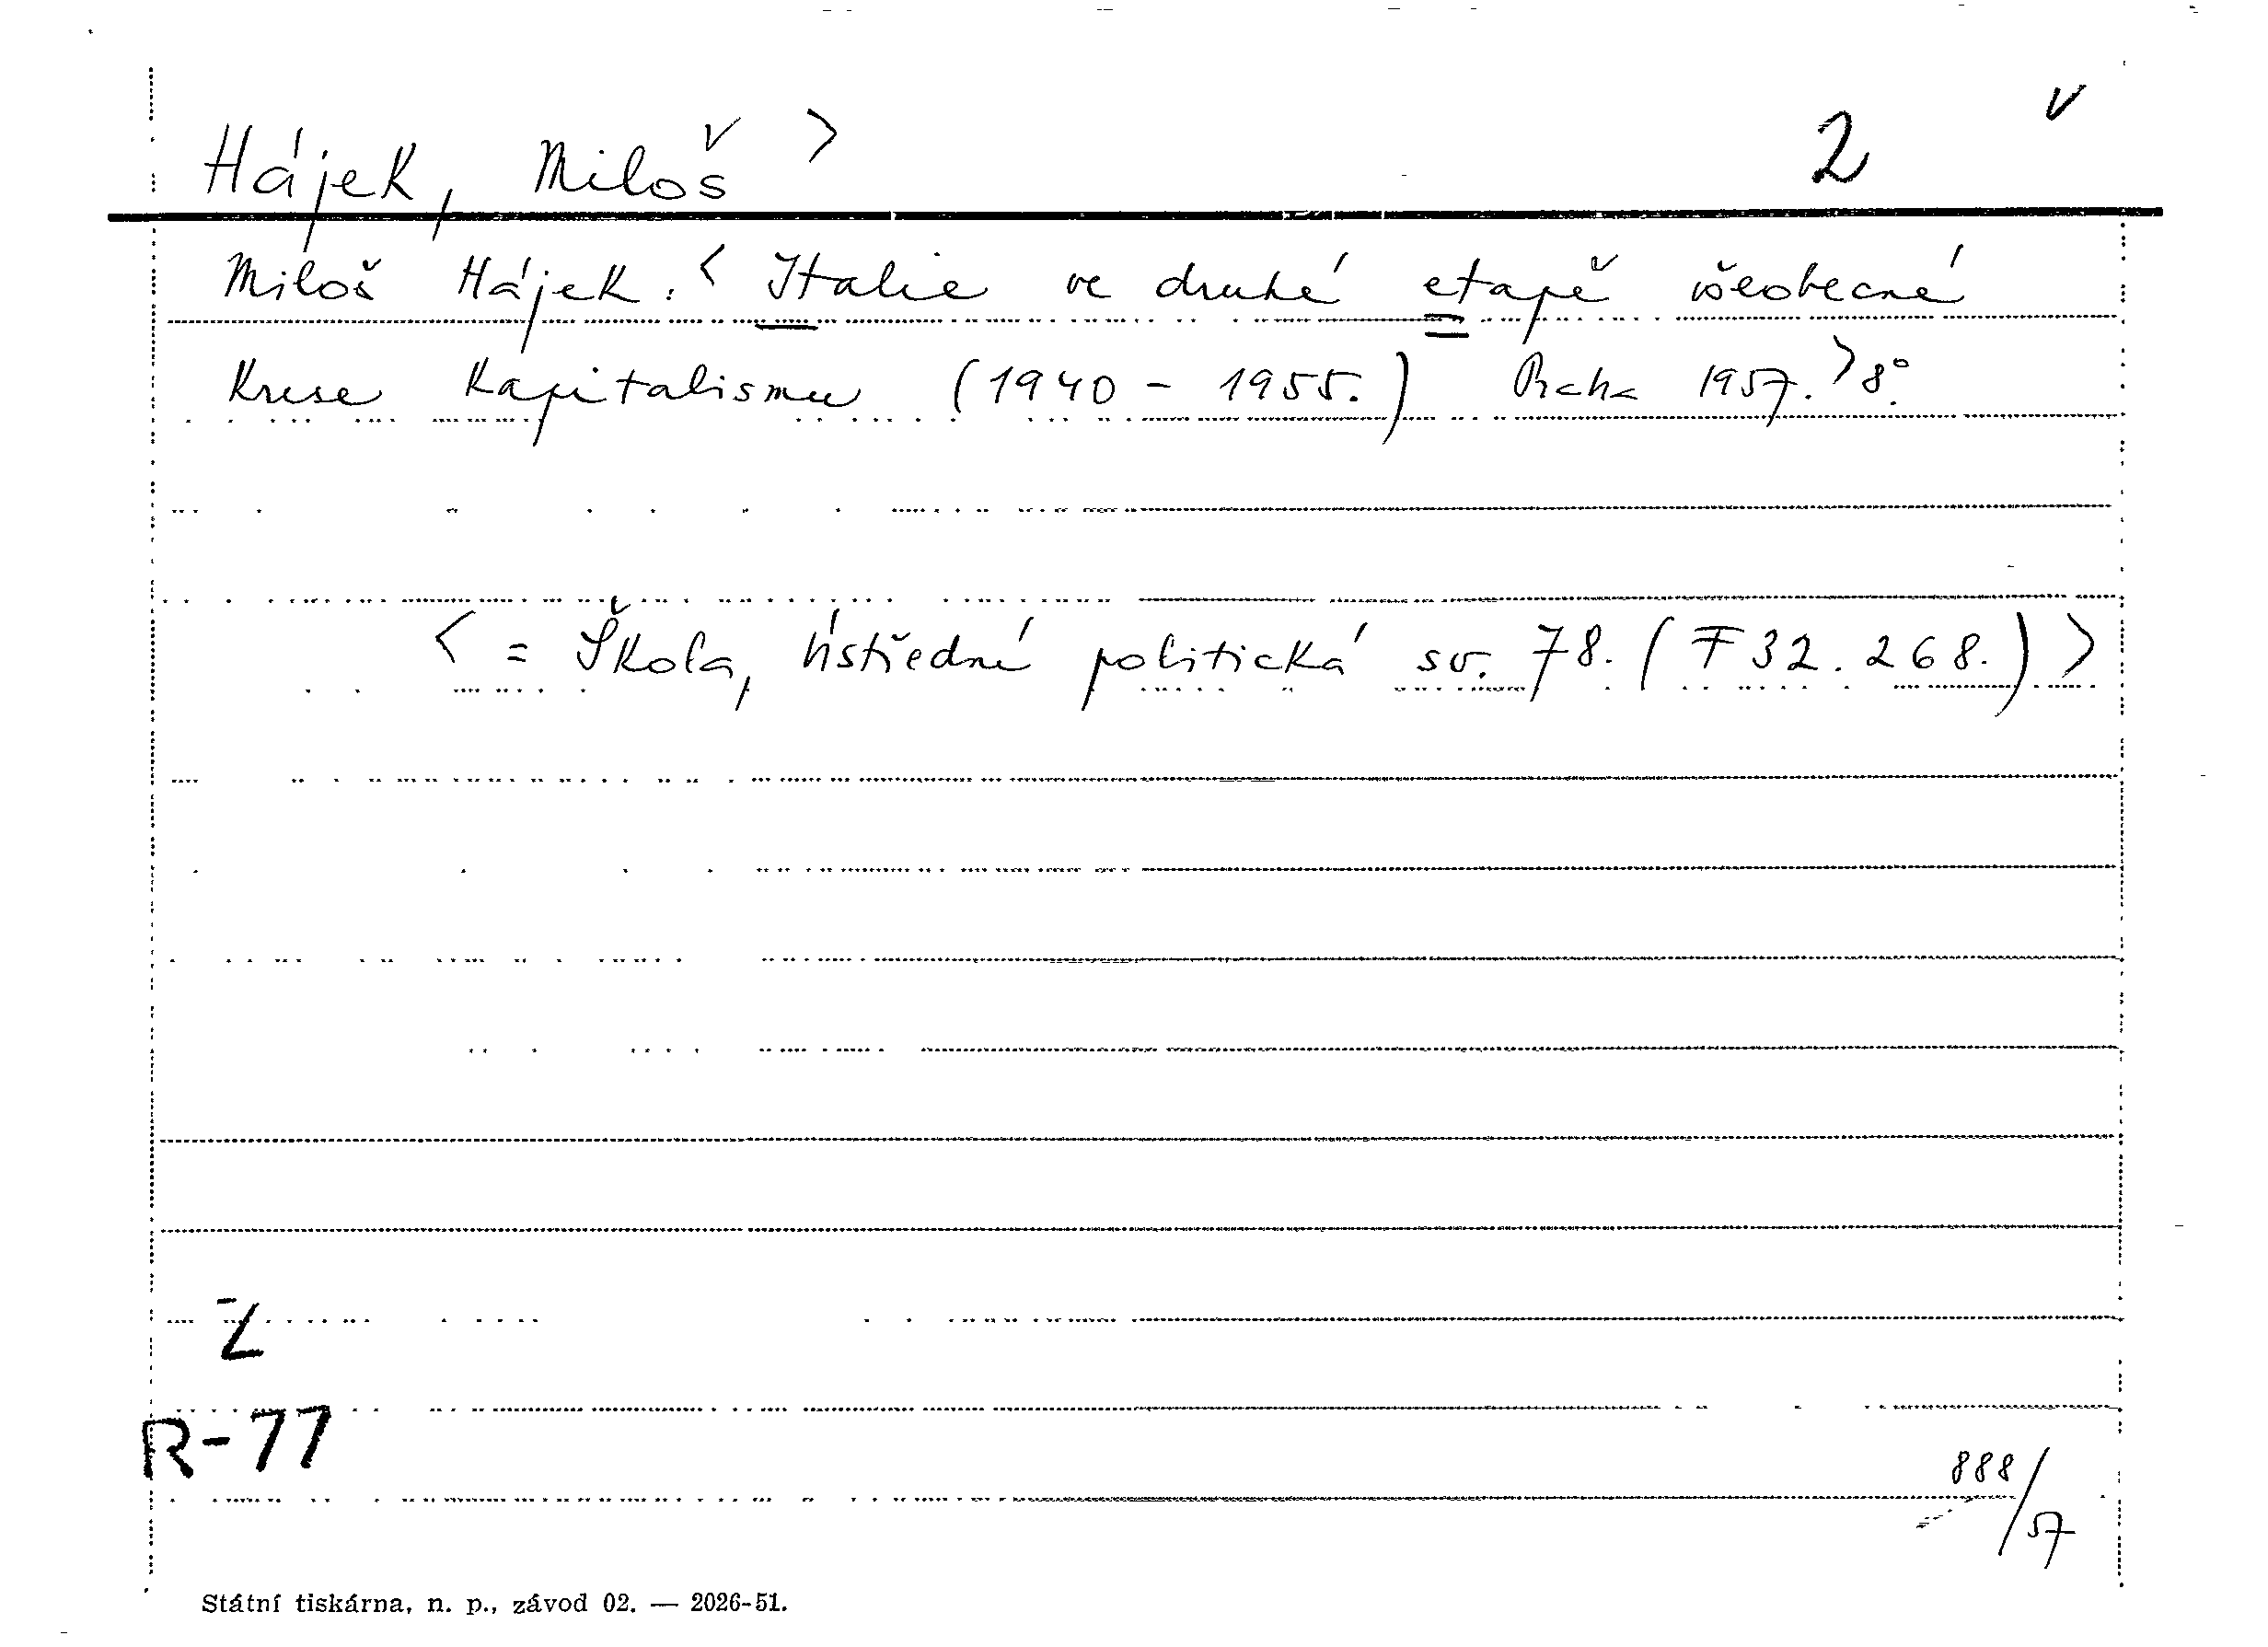 Hájek, Miloš > 2 v
Miloš Hájek: < Italie ve druhé etapě všeobecné
Krise kapitalismu (1940 - 1955.) Praha 1957. > 8°.
< = Škola, Ústřední politická sv. 78. (F 32.268.) >
Z
R-77
888/57
Státní tiskárna, n. p., závod 02. — 2026-51.